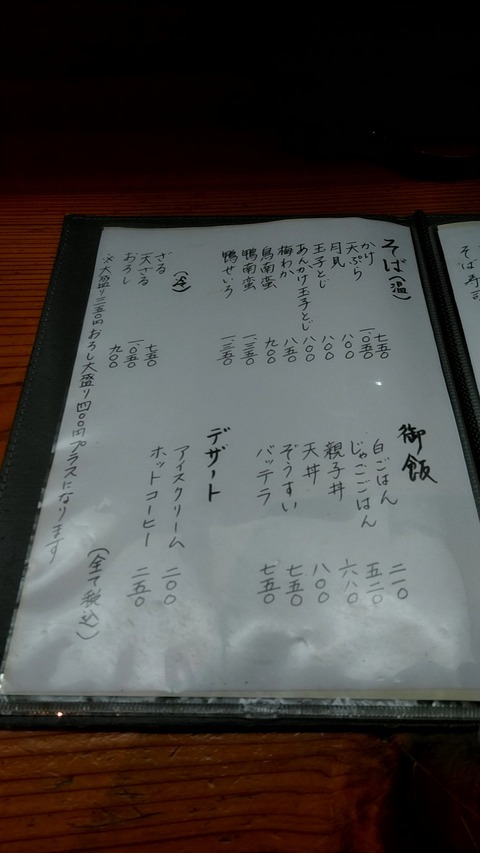 そば寿司
そば(温)
かけ 七五〇
天ぷら 一〇五〇
月見 八〇〇
玉子とじ 八〇〇
あんかけ玉子とじ 八〇〇
梅わか 八五〇
鳥南蛮 九〇〇
鴨南蛮 一三五〇
鴨せいろ 一三五〇
(冷)
ざる 七五〇
天ざる 一〇五〇
おろし 九〇〇
※大盛り三五〇円おろし大盛り四〇〇円プラスになります
御飯
白ごはん 二一〇
じゃこごはん 五二〇
親子丼 六八〇
天丼 八〇〇
ぞうすい 七五〇
バッテラ 七五〇
デザート
アイスクリーム 二〇〇
ホットコーヒー 二五〇
(全て税込)